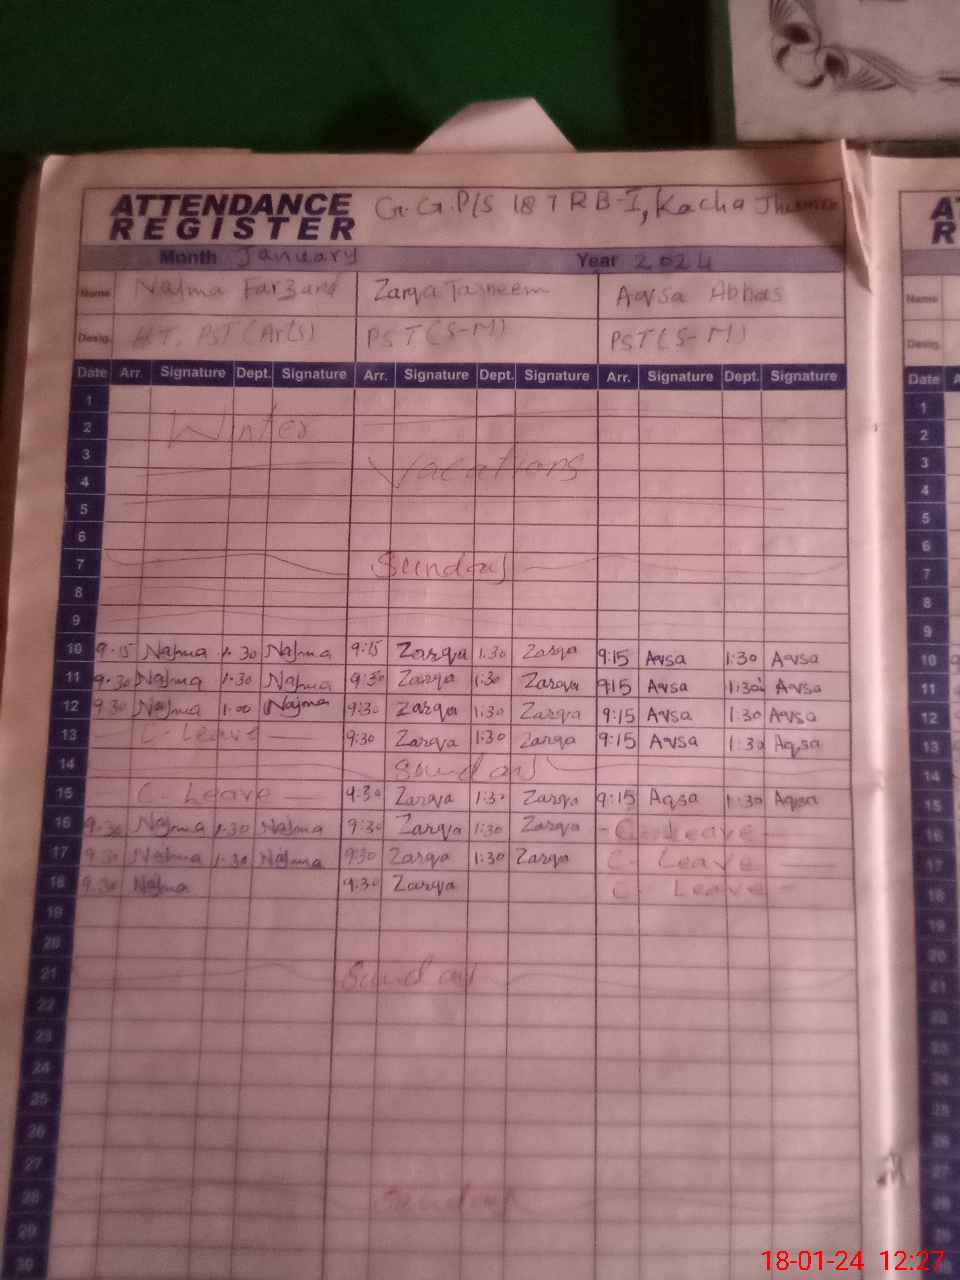 ATTENDANCE REGISTER G.G.P/S 187 RB-I, Kacha
Month January Year 2024
Name Najma Farzand Zarqa Tasneem Aqsa Abbas
Desig. H.T, PST (Arts) PST (S-M) PST (S-M)
Date Arr. Signature Dept. Signature Arr. Signature Dept. Signature Arr. Signature Dept. Signature
1
2 Winter
3 Vacations
4
5
6
7 Sunday
8
9
10 9.15 Najma 1.30 Najma 9:15 Zarqa 1:30 Zarqa 9:15 Aqsa 1:30 Aqsa
11 9.30 Najma 1.30 Najma 9:30 Zarqa 1:30 Zarqa 9:15 Aqsa 1:30 Aqsa
12 9.30 Najma 1.00 Najma 9:30 Zarqa 1:30 Zarqa 9:15 Aqsa 1:30 Aqsa
13 C. Leave 9:30 Zarqa 1:30 Zarqa 9:15 Aqsa 1:30 Aqsa
14 Sunday
15 C. Leave 9:30 Zarqa 1:30 Zarqa 9:15 Aqsa 1:30 Aqsa
16 9.30 Najma 1.30 Najma 9:30 Zarqa 1:30 Zarqa C. Leave
17 9.30 Najma 1.30 Najma 9:30 Zarqa 1:30 Zarqa C. Leave
18 9.30 Najma 9:30 Zarqa C. Leave
19
20
21 Sunday
22
23
24
25
26
27
28 Sunday
29
30
A
R
Name
Desig.
Date A
1
2
3
4
5
6
7
8
9
10
11
12
13
14
15
16
17
18
19
20
21
22
23
24
25
26
27
28
29
18-01-24 12:27